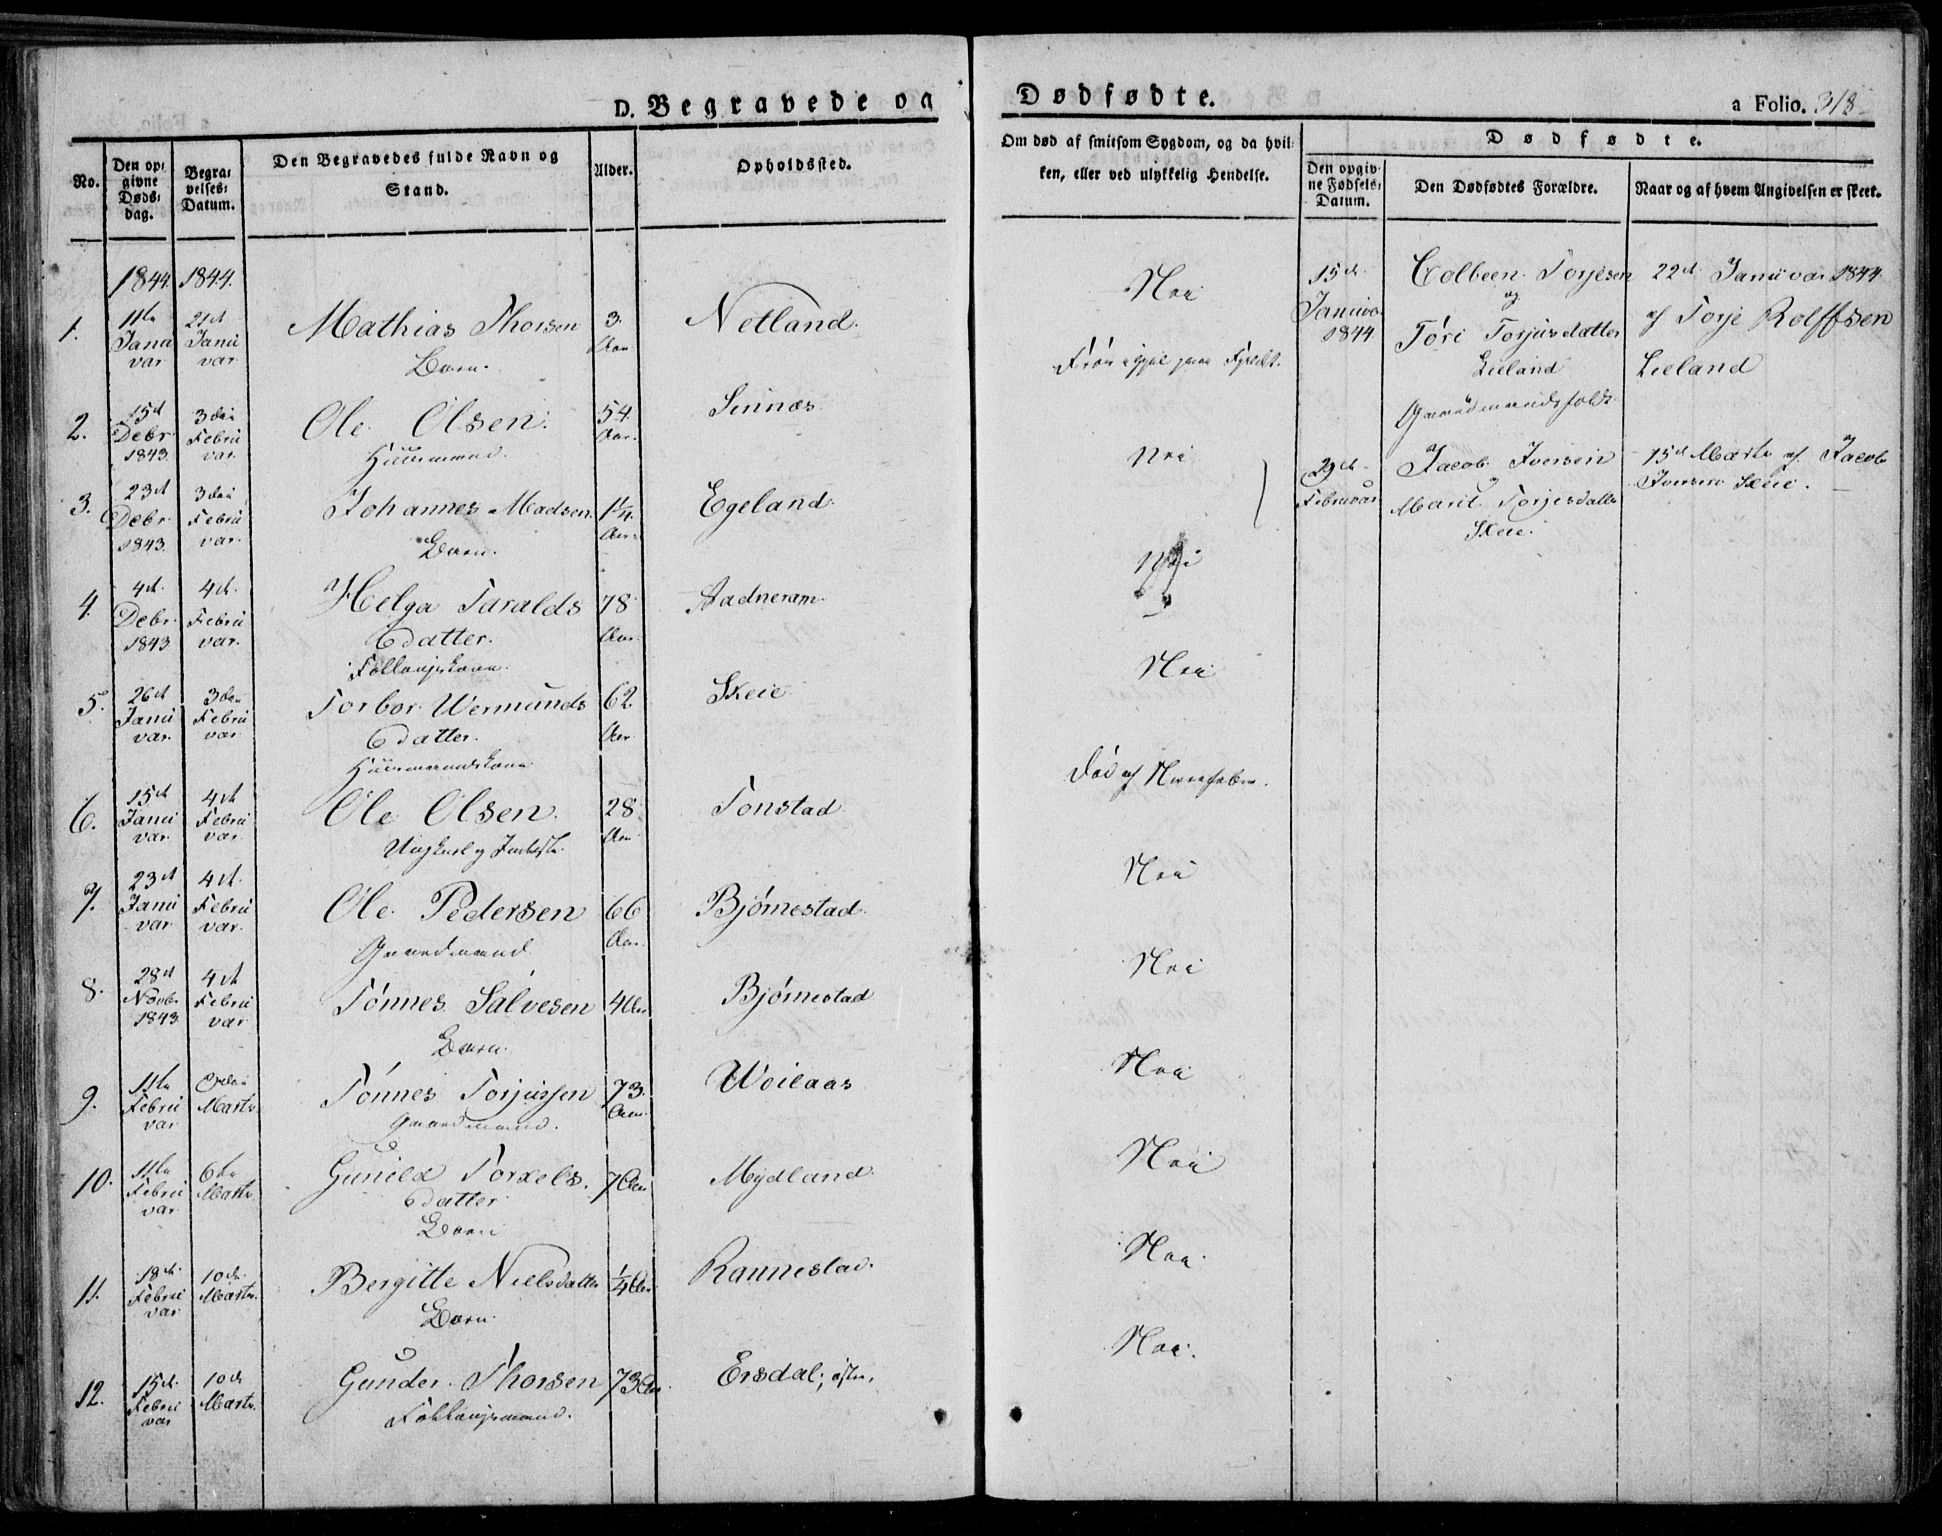 D. Begravede og Dødfødte.
a Folio. 318
No.
Den opgivne Dødsdag.
Begravelses-Datum.
Den Begravedes fulde Navn og Stand.
Alder.
Opholdssted.
Om død af smitsom Sygdom, og da hvilken, eller ved ulykkelig Hendelse.
Dødfødte.
Den opgivne Fødsels-Datum.
Den Dødfødtes Forældre.
Naar og af hvem Angivelsen er skeet.
1844. 1844.
1. 11te Januvar 21de Januvar Mathias Thorsen 3. Aar Netland. Nei
Barn.
2. 15de Debr. 1843. 3die Februvar Ole Olsen. 54. Aar. Sinnæs
Huusmand.
3. 23de Debr. 1843. 3die Februvar. Johannes Madsen. 1¼. Aar. Egeland. Nei
Barn.
4. 4de Debr. 1843 4de Februvar. Helga Taralds 78 Aar. Aadneram. Nei
datter.
Follougskone.
5. 26de Januvar. 3die Februvar Torbor Wermunds 62. Aar Skeie Nei
datter.
Huusmandskone
6. 15de Januvar 4de Februvar Ole Olsen. 28. Aar Tonstad
Ungkarl og
7. 23de Januvar 4de Februvar. Ole Pedersen 66 Aar. Bjørnestad. Nei
Gaardmand
8. 28de Novbr. 1843 4de Februvar Tønnes Salvesen 4 Aar Bjørnestad Nei
Barn.
9. 11te Februvar 3die Marts. Tønnes Torjussen 73. Aar. Woilaas Nei
Gaardmand.
10. 11te Februvar 6te Marts. Gunild Torkels. 7 Aar Mydland. Nei
datter
Barn
11. 18de Februvar 10de Marts. Bergitte Nielsdatter ¼ Aar Rannestad. Nei.
Barn.
12. 15de Februvar 10de Marts. Gunder Thorsen 73 Aar Ersdal, østre. Nei.
Follougsmand.
15de Januvar 1844.
Colbeen Torjesen
og
Tøri Torjusdatter
Lieland
Gaardmandsfolk
22de Januvar 1844
af Torje Rolffsen
Lieland
29de Februvar
Jacob Iversen
og
Marit Torjesdatter
Skeie.
15de Marts af Jacob
Iversen Skeie.